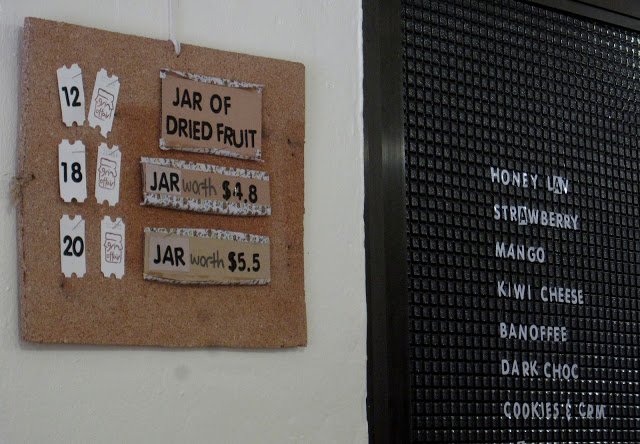 12
JAR OF
DRIED FRUIT
18
JAR worth $4.8
20
JAR worth $5.5
HONEY LAN
STRAWBERRY
MANGO
KIWI CHEESE
BANOFFEE
DARK CHOC
COOKIES & CRM